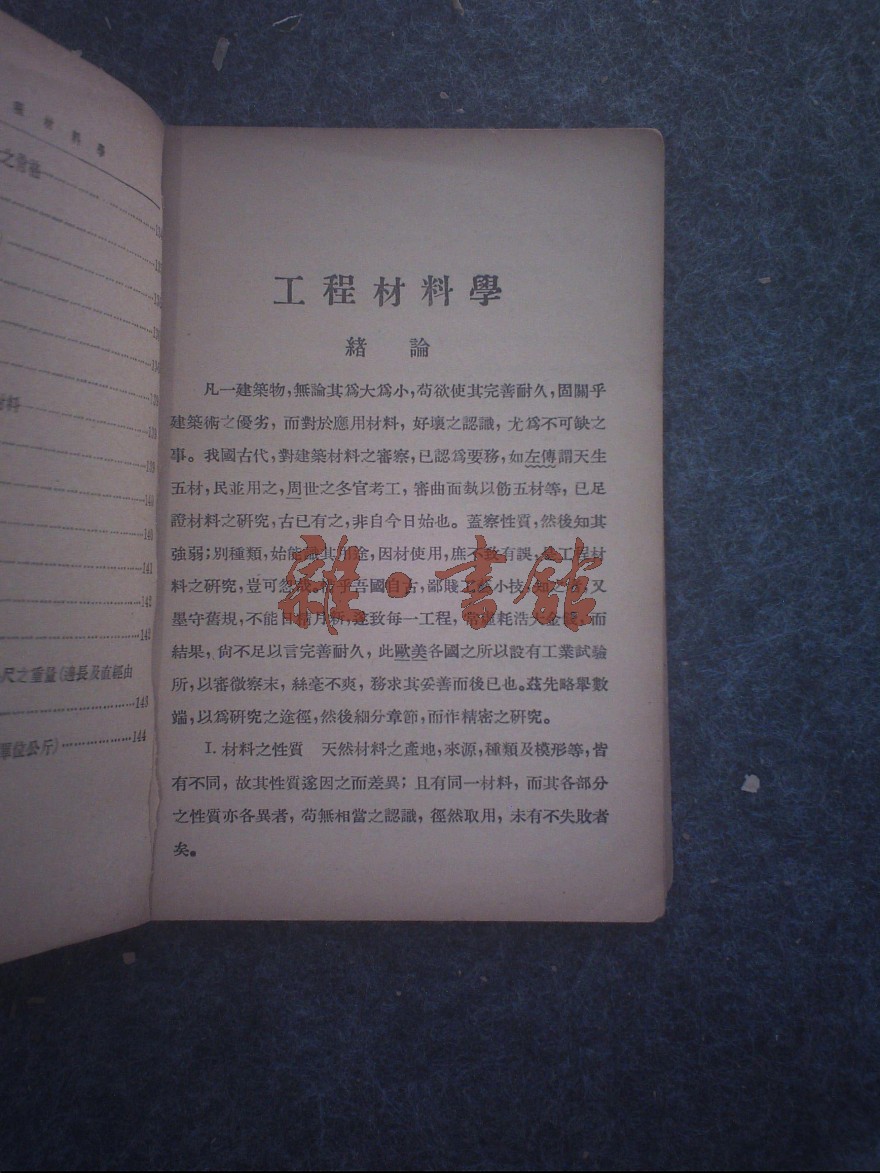 程材料學
134
139
139
140
140
141
142
142
尺之重量(邊長及直經由
143
單位公斤)
144
工程材料學
緒論
凡一建築物,無論其爲大爲小,苟欲使其完善耐久,固關乎
建築術之優劣,而對於應用材料,好壞之認識,尤爲不可缺之
事。我國古代,對建築材料之審察,已認爲要務,如左傳謂天生
五材,民並用之,周世之冬官考工,審曲面埶以飭五材等,已足
證材料之研究,古已有之,非自今日始也。蓋察性質,然後知其
強弱;別種類,始能識其用途,因材使用,庶不致有誤,是工程材
料之研究,豈可忽哉。惜乎吾國自古,鄙賤工藝小技,又
墨守舊規,不能日精月新,遂致每一工程,常虛耗浩大金錢,而
結果,尙不足以言完善耐久,此歐美各國之所以設有工業試驗
所,以審微察末,絲毫不爽,務求其妥善而後已也。茲先略舉數
端,以爲研究之途徑,然後細分章節,而作精密之研究。
I. 材料之性質 天然材料之產地,來源,種類及模形等,皆
有不同,故其性質遂因之而差異;且有同一材料,而其各部分
之性質亦各異者,苟無相當之認識,徑然取用,未有不失敗者
矣。
雜·書館